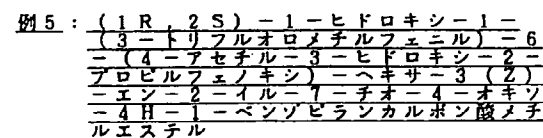 例5:(1R,2S)-1-ヒドロキシ-1-
(3-トリフルオロメチルフェニル)-6
-(4-アセチル-3-ヒドロキシ-2-
プロピルフェノキシ)-ヘキサ-3(Z)
-エン-2-イル-7-チオ-4-オキソ
-4H-1-ベンゾピランカルボン酸メチ
ルエステル